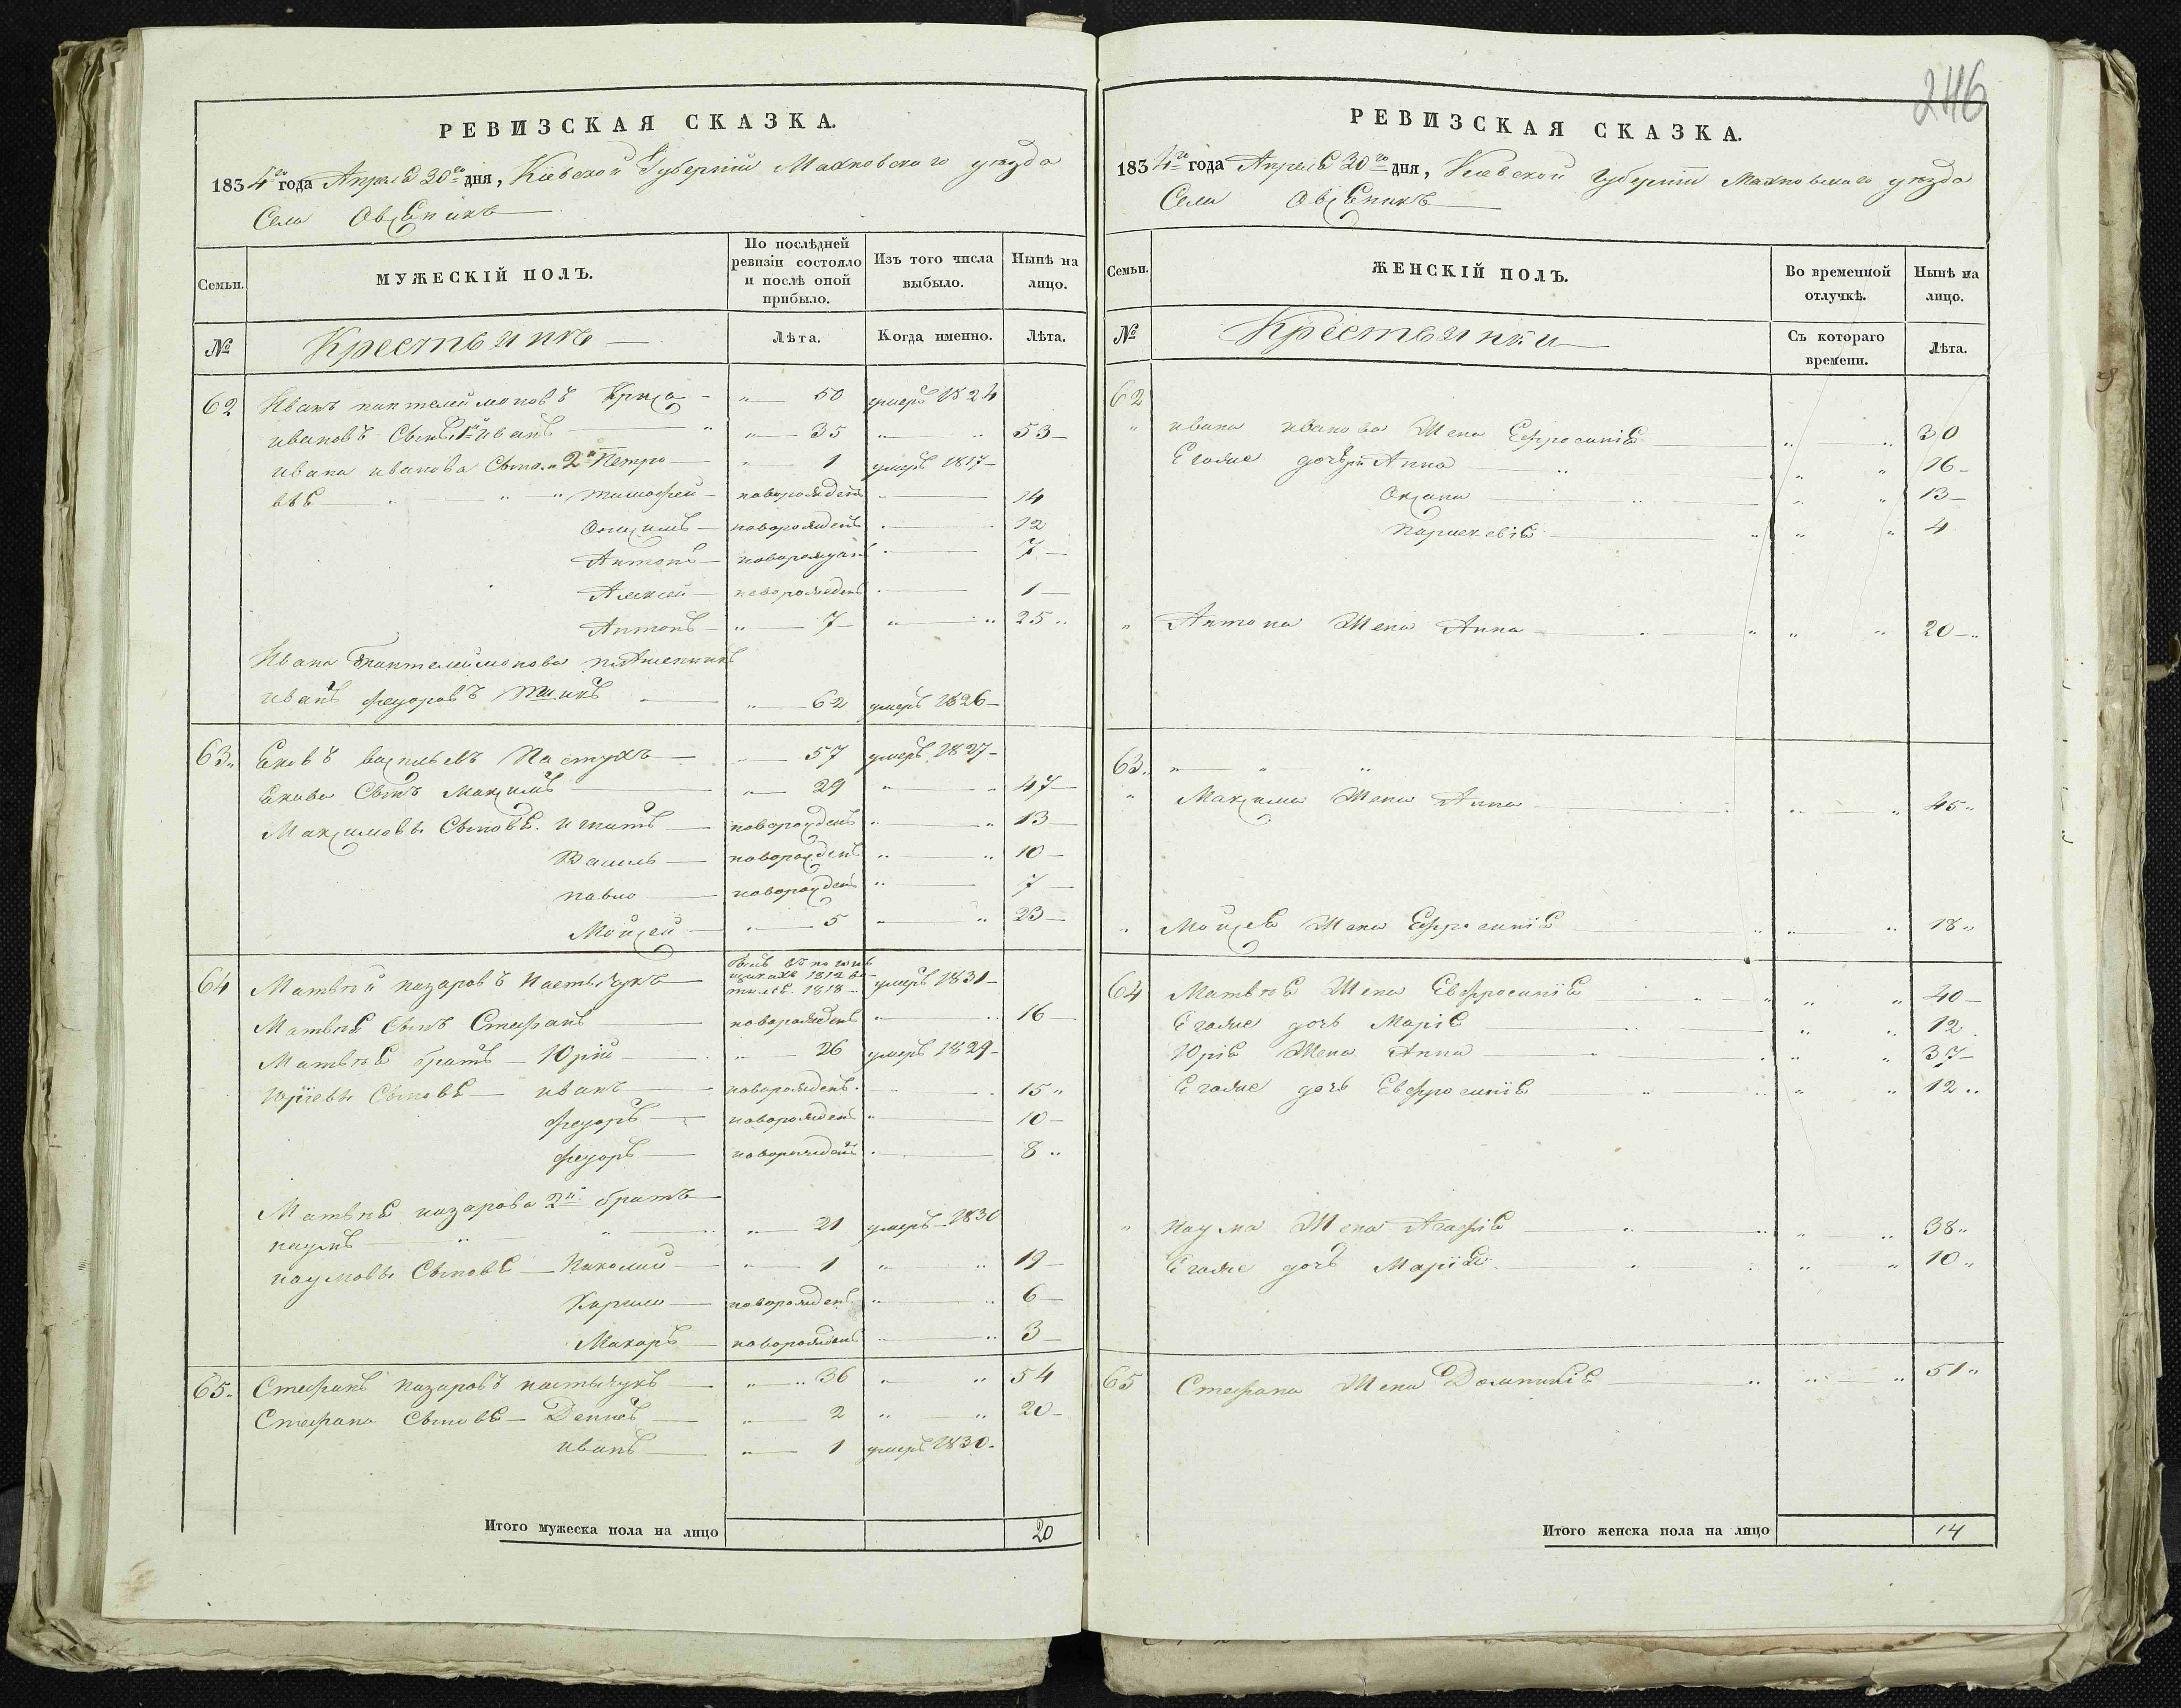 246
РЕВИЗСКАЯ СКАЗКА.
1834го года Апреля 30го дня, Киевской Губернии Махновского уезда
Села Овсяникъ
Семьи. МУЖЕСКІЙ ПОЛЪ. По послѣдней ревизіи состояло и послѣ оной прибыло. Изъ того числа выбыло. Нынѣ на лицо.
№ Крестьянъ Лѣта. Когда именно. Лѣта.
62 Иванъ пантелеймоновъ 50 умеръ 1824
ивановъ Сынъ 1й иванъ 35 53
ивана иванова Сынъ 2й Петро 1 умеръ 1817
тимофей новорожденъ 14
Онисимъ новорожденъ 12
Антонъ новорожденъ 7
Алексей новорожденъ 1
Антонъ 7 25
Ивана пантелеймонова племенникъ
иванъ федоровъ 62 умеръ 1826
63 Яковъ васильевъ Пастухъ 57 умеръ 1827
Якова Сынъ Максимъ 29 47
Максимовы Сыновя игнатъ новорожденъ 13
Василь новорожденъ 10
павло новорожденъ 7
Мойсей 5 23
64 Матвѣй назаровъ умеръ 1831
Матвѣя Сынъ Стефанъ новорожденъ 16
Матвѣя братъ Юрій 26 умеръ 1829
Юріевы Сыновя иванъ новорожденъ 15
федоръ новорожденъ 10
федоръ новорожденъ 8
Матвѣя назарова 2й братъ
наумъ 21 умеръ 1830
наумовы Сыновя Николай 1 19
Кирило новорожденъ 6
Макаръ новорожденъ 3
65 Стефанъ назаровъ 36 54
Стефана Сыновя Денисъ 2 20
иванъ 1 умеръ 1830
Итого мужеска пола на лицо 20
РЕВИЗСКАЯ СКАЗКА.
1834го года Апреля 30го дня, Киевской Губерніи Махновскаго уезда
Села Овсяникъ
Семьи. ЖЕНСКІЙ ПОЛЪ. Во временной отлучкѣ. Нынѣ на лицо.
№ Крестьянки Съ котораго времени. Лѣта.
62
ивана иванова Жена Ефросинія 30
Егоже дочери Анна 16
Оксана 13
Параскевія 4
Антона Жена Анна 20
63
Максима Жена Анна 45
Мойсея Жена Ефросинія 18
64 Матвѣя Жена Евфросинія 40
Егоже дочь Марія 12
Юрія Жена Анна 37
Егоже дочь Евфросинія 12
Наума Жена Агафія 38
Егоже дочь Марія 10
65 Стефана Жена Домникія 51
Итого женска пола на лицо 14